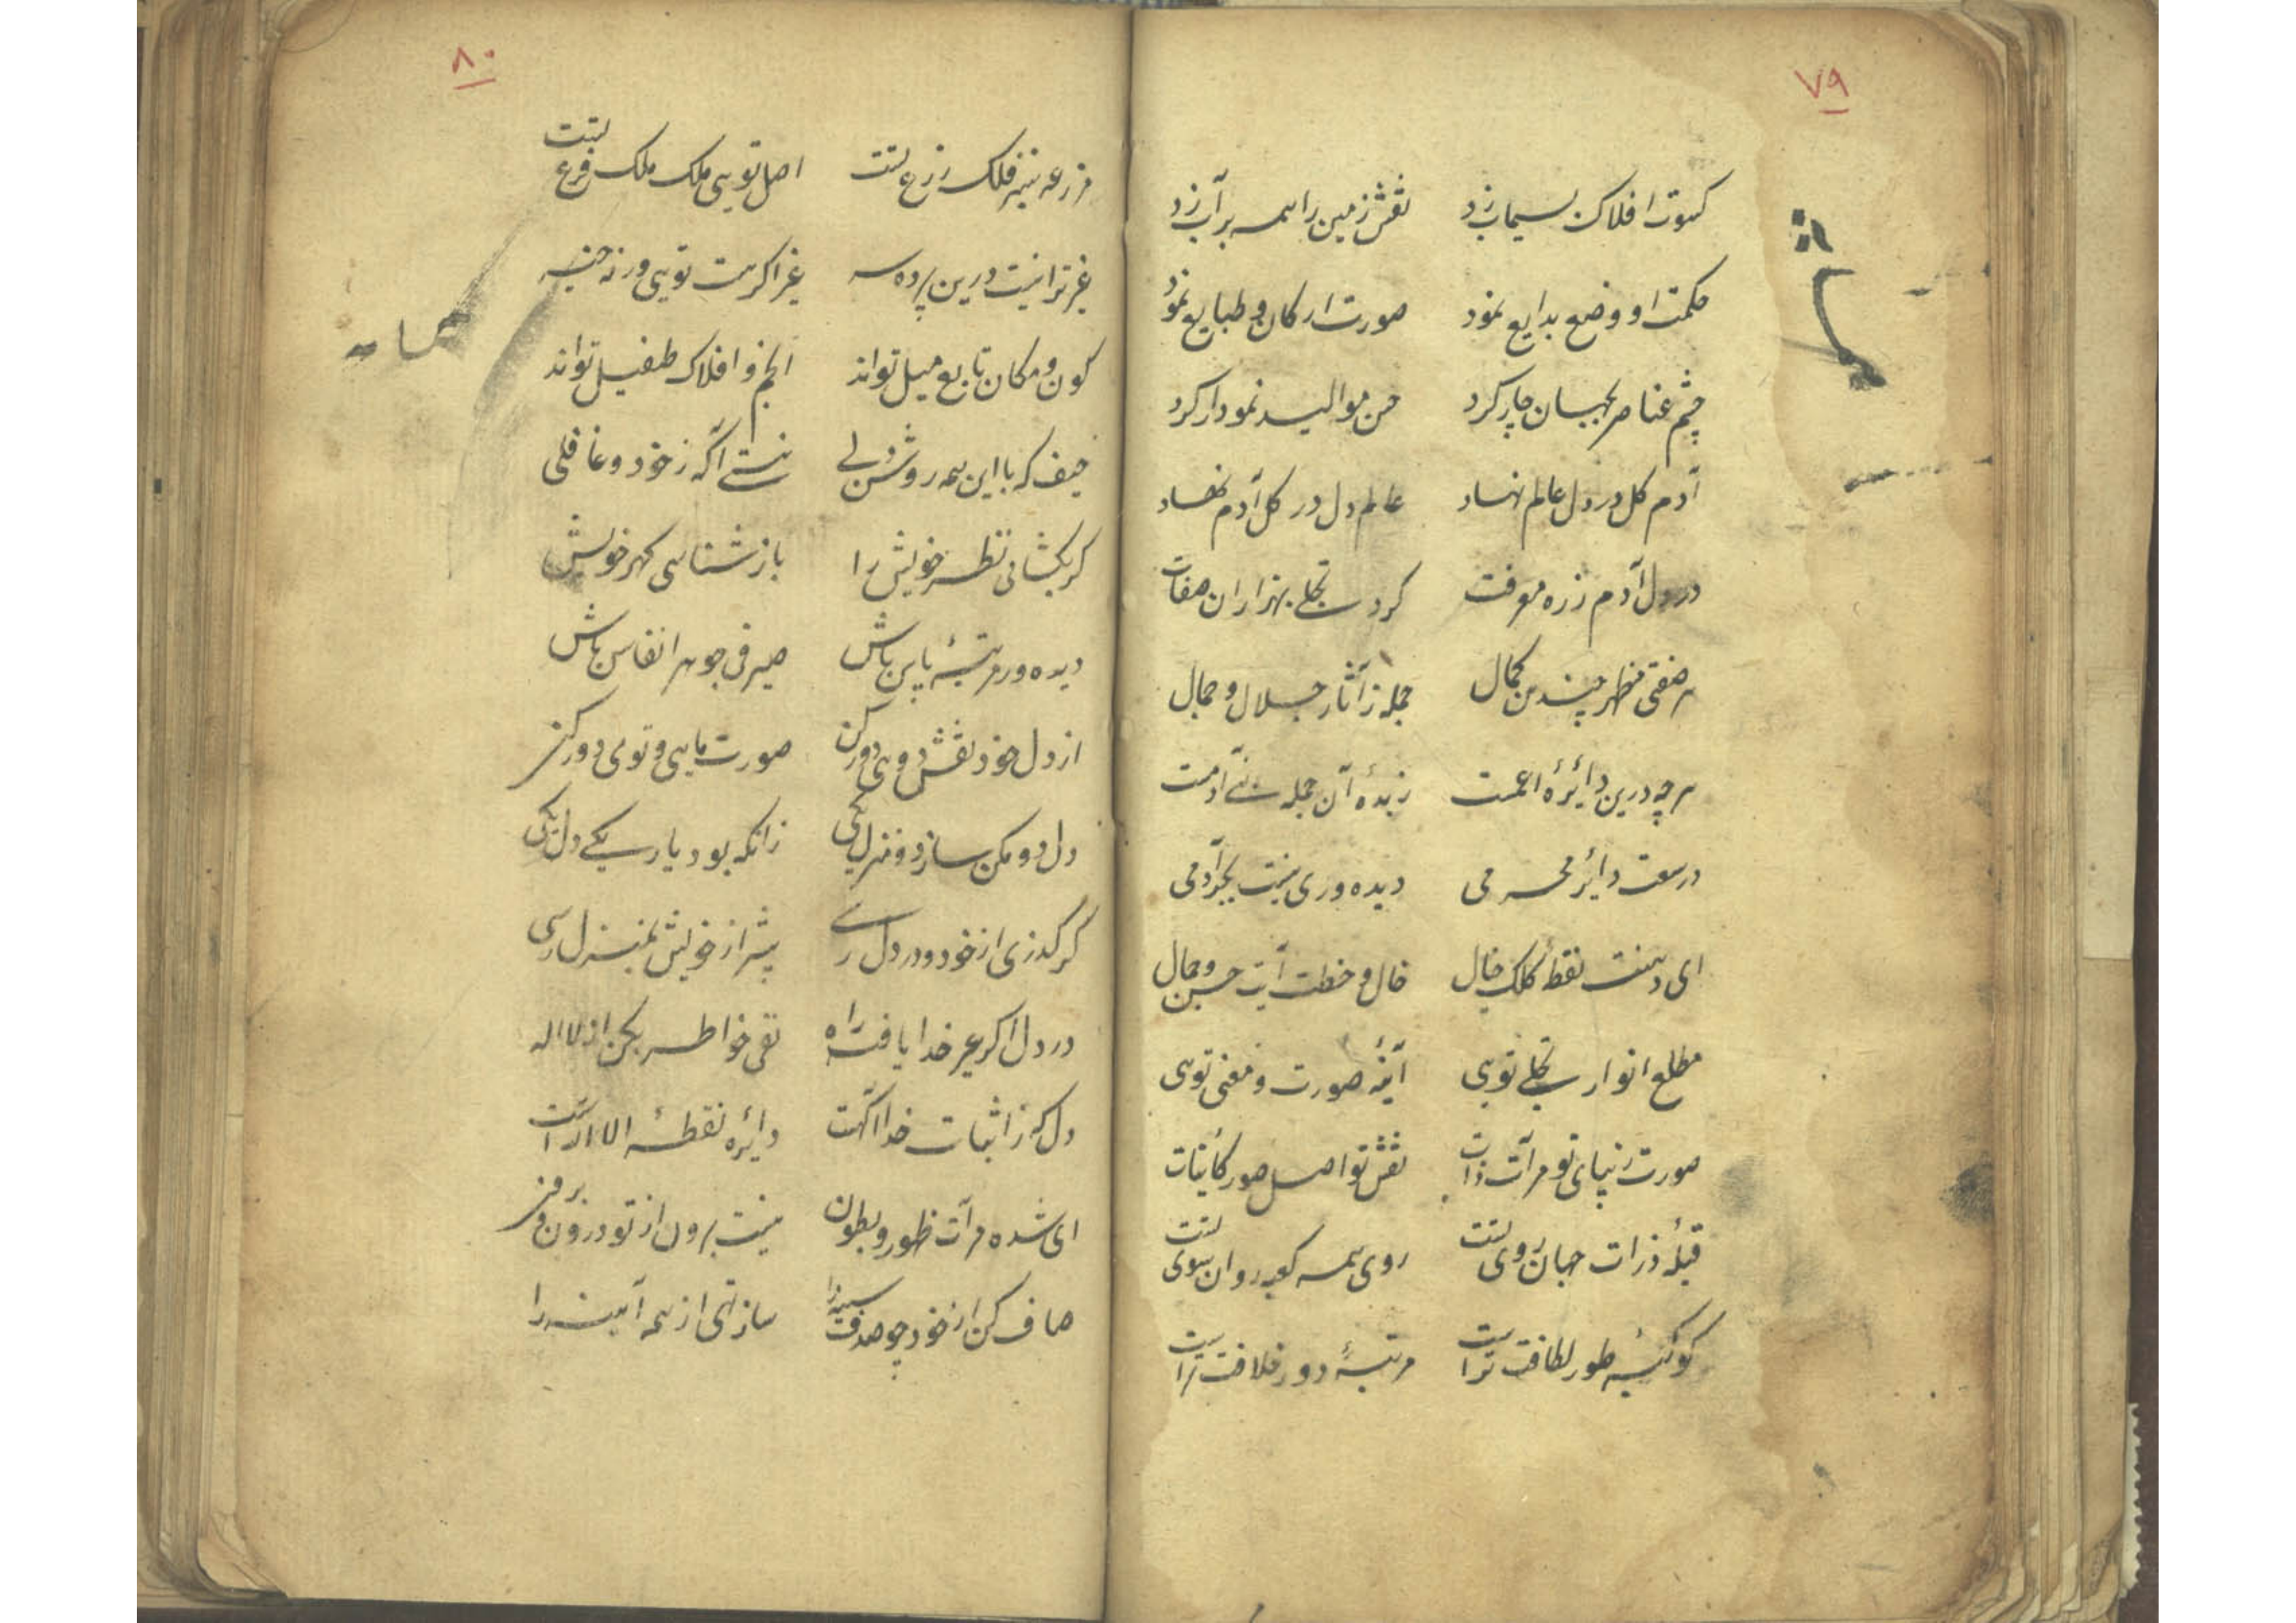 ۷۹
کسوت افلاک بسیماب زد نقش زمین را همه بر آب زد
حکمت او وضع بدایع نمود صورت ارکان و طبایع نمود
چشم عناصر بجهان چار کرد حسن موالید نمودار کرد
آدم کل در دل عالم نهاد عالم دل در کل آدم نهاد
در دل آدم ز ره معرفت کرد تجلی بهزاران صفات
هر صفتی مظهر چندین کمال جمله ز آثار جلال و جمال
هرچه درین دایرهٔ اعمست زبدهٔ آن جمله بنی آدمست
در سعت دایر محرمی دیده‌وری نیست بجز آدمی
ای دهنت نقطهٔ کلک خیال خال و خطت آیت حسن و جمال
مطلع انوار تجلی تویی آینهٔ صورت و معنی تویی
صورت زیبای تو مرآت ذات نقش تو اصل صور کاینات
قبلهٔ ذرات جهان روی تست روی همه کعبه روان سوی تست
کوکبهٔ طور لطافت تراست مرتبهٔ دور خلافت تراست
۸۰
مزرعه سبز فلک زرع تست اصل تویی ملک ملک فرع تست
غیر ترا نیست درین پرده ره غیر اگر هست تویی ورنه
کون و مکان تابع میل تواند انجم و افلاک طفیل تواند
حیف که با این همه روشن دلی نیستی آگه ز خود و غافلی
گر بگشائی نظر خویش را باز شناسی گهر خویش
دیده ور مرتبهٔ پاس باش صیرفی جوهر انفاس باش
از دل خود نقش دوی دور کن صورت مایی و تویی دور کن
دل دو مکن ساز دو منزل یکی زانکه بود یار یکی دل یکی
گر گذری از خود و در دل رسی پیشتر از خویش بمنزل رسی
در دل اگر غیر خدا یافت راه نفی خواطر بکن از لا اله
دل که ز اثبات خدا آگهست دایره نقطهٔ الا اللهست
ای شده مرآت ظهور و بطون نیست برون از تو درون و برون
صاف کن از خود چو صدف سینه را ساز تهی از همه آیینه را